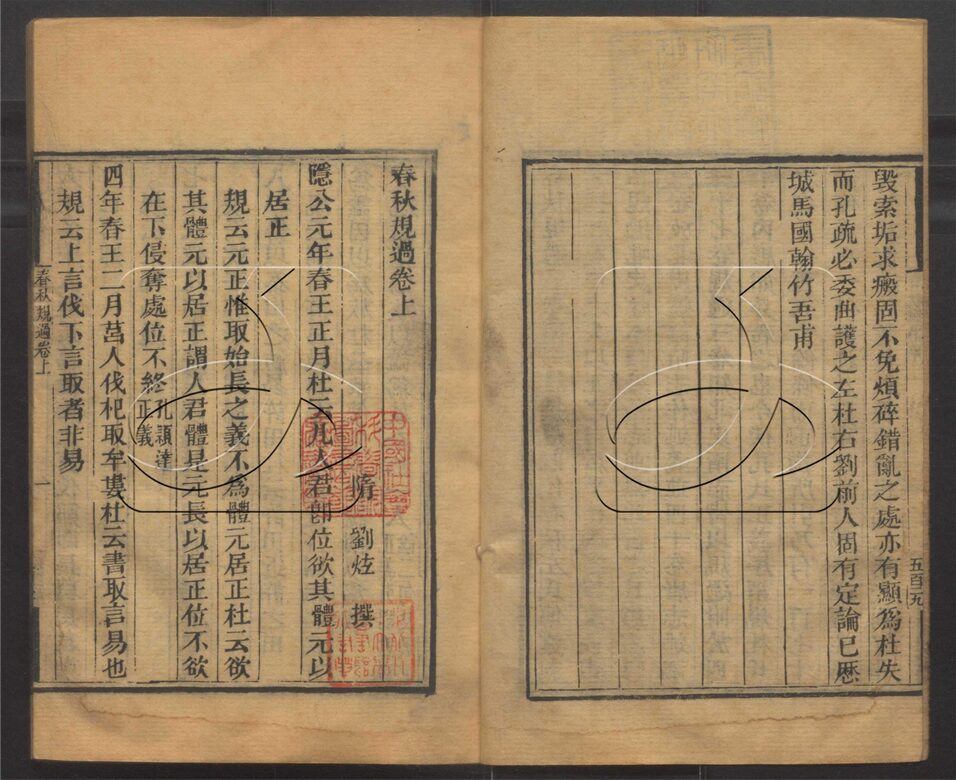 毀索垢求瘢固不免煩碎錯亂之處亦有顯為杜失
而孔疏必委曲護之左杜右劉前人固有定論已歷
城馬國翰竹吾甫
五百九
春秋規過卷上
隋 劉炫 撰
隱公元年春王正月杜云凡人君即位欲其體元以
居正
規云元正惟取始長之義不為體元居正杜云欲
其體元以居正謂人君體是元長以居正位不欲
在下侵奪處位不終孔穎達正義
四年春王二月莒人伐杞取牟婁杜云書取言易也
規云上言伐下言取者非易
春秋規過卷上
一